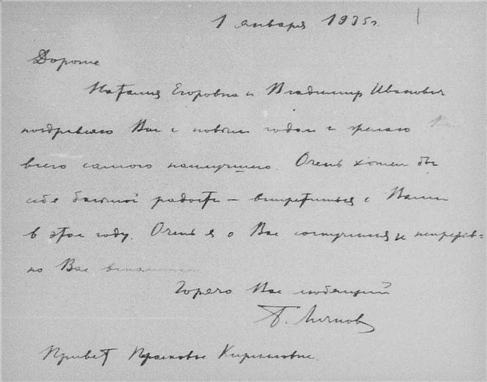 1 января 1935 г.
Дорогие
Наталия Егоровна и Владимир Иванович
поздравляю Вас с новым годом и желаю Вам
всего самого наилучшего. Очень хотел бы
себе большой радости — встретиться с Вами
в этом году. Очень я о Вас соскучился и непрерыв-
но Вас вспоминаю
Горячо Вас любящий
Б. Личков
Привет Прасковье Кирилловне.